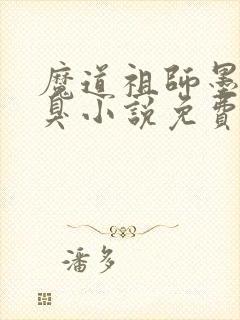 魔道祖師墨
臭小說免費
潘多